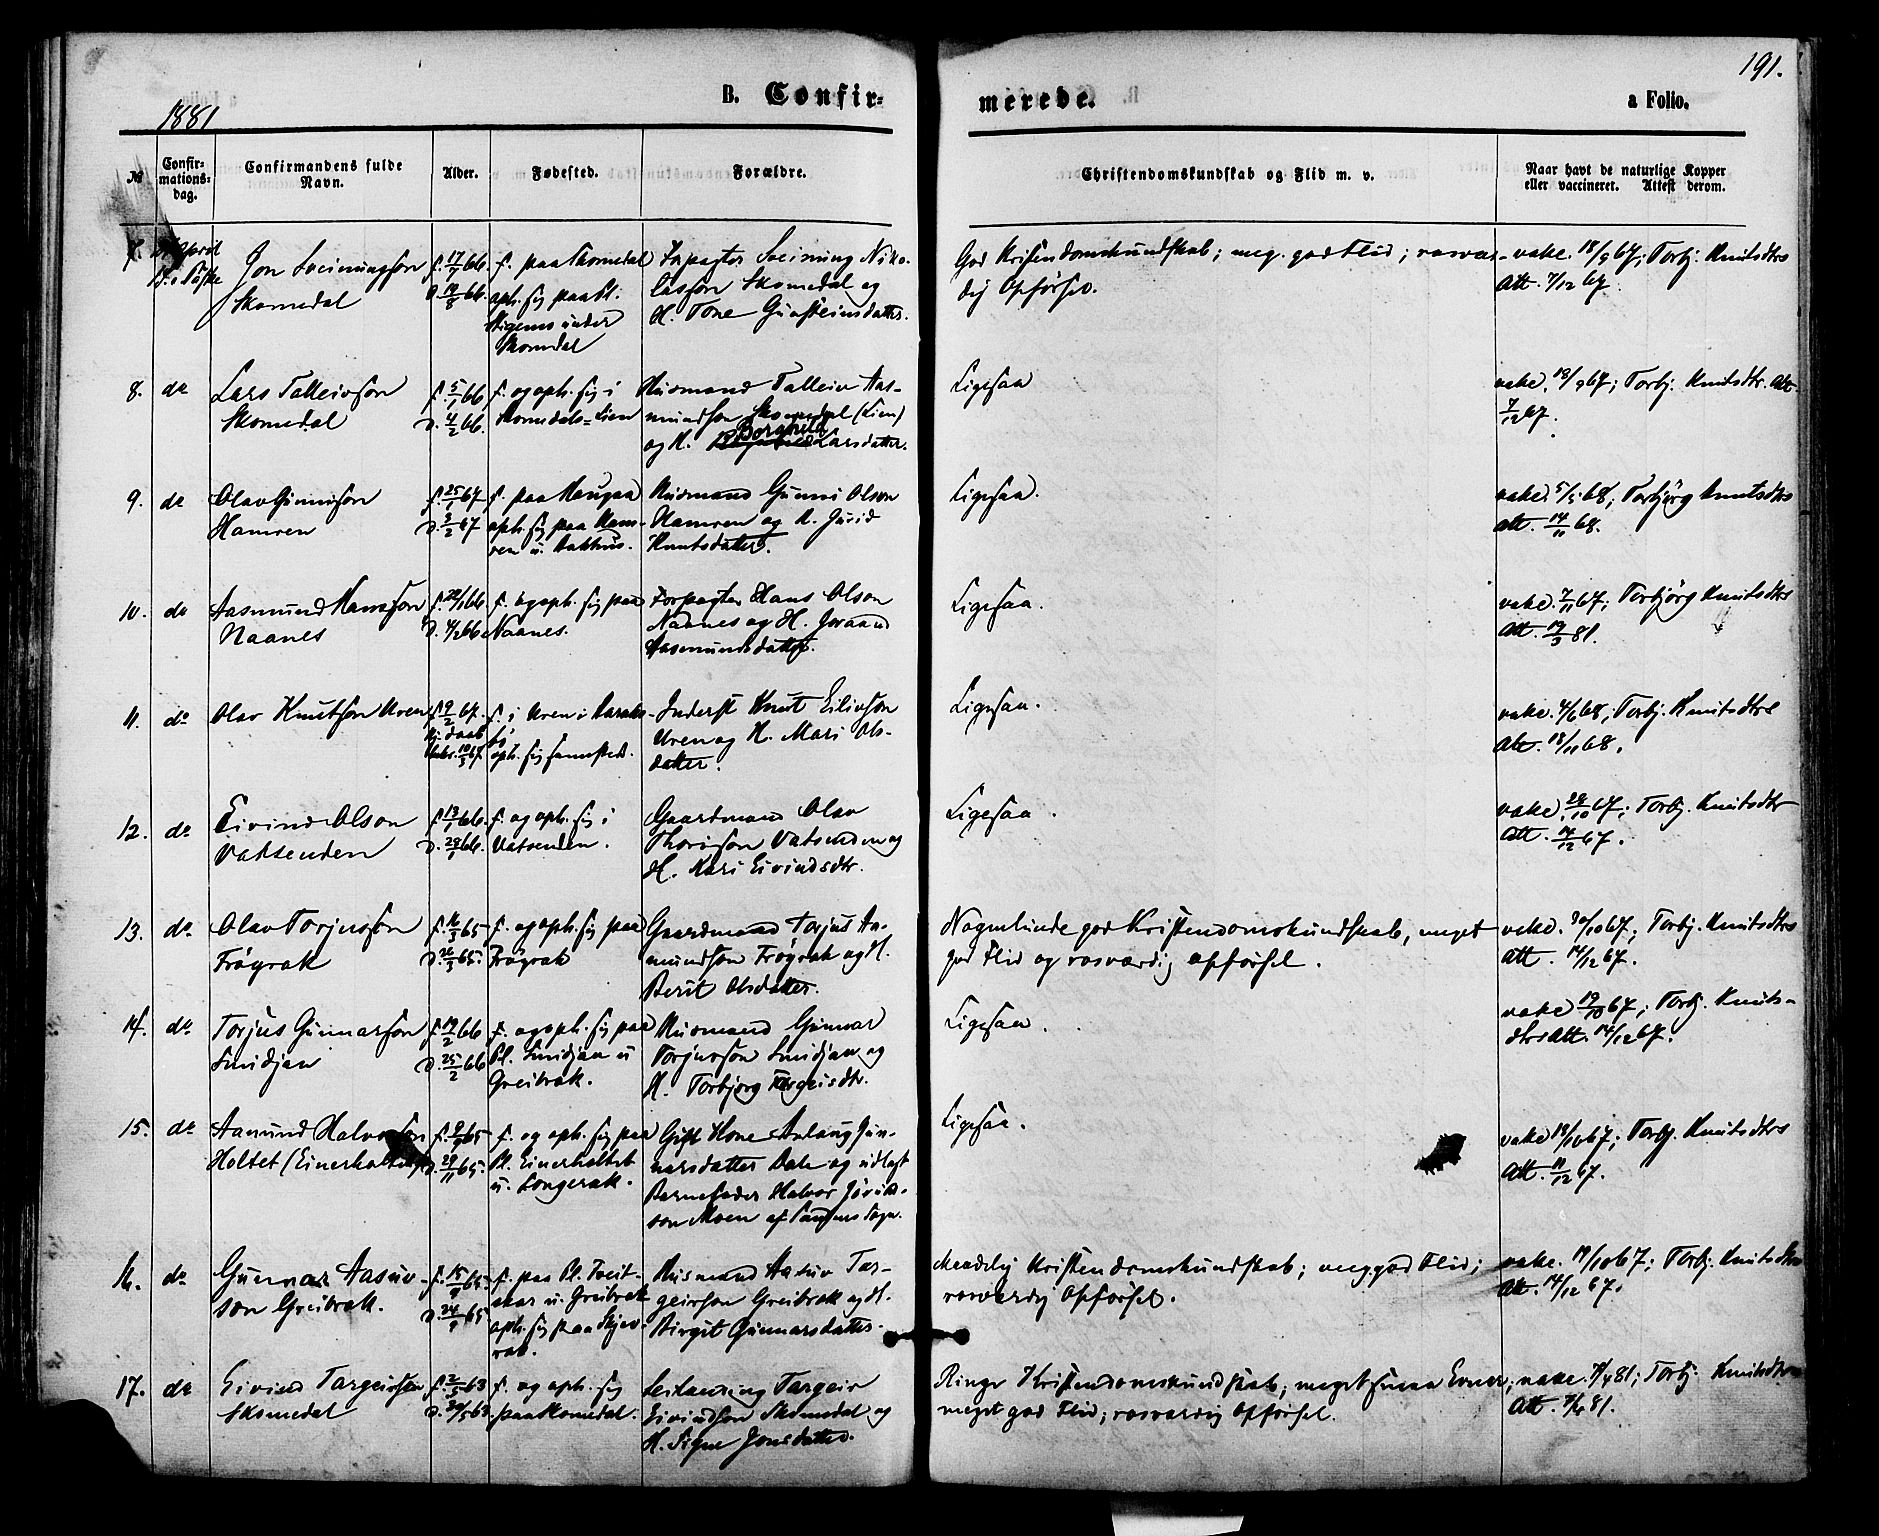 191.
1881
B. Confir-
merede.
a Folio.
№
Confir-
mations-
dag.
Confirmandens fulde
Navn.
Alder.
Fødested.
Forældre.
Christendomskundskab og Flid m. v.
Naar havt de naturlige Kopper
eller vaccineret. Attest derom.
7.
April
Påske
Jon Sveinungson
Skomedal
f. 17/7 66
d. 19/8 66.
f. paa Skomedal
oph. sig paa Pl.
Stigemo under
Skomdal
Forpagter Sveinung Niko-
lasson Skomedal og
H. Tone Gunsteinsdatter.
God Kristendomskundskab; meg. god Flid; rosvær-
dig Opførsel.
vakc. 18/9 67; Torbj. Knutsdtrs
Att. 7/12 67.
8.
do
Lars Talleivson
Skomedal
f. 5/1 66
d. 4/2 66.
f. og oph. sig i
Skomedals-Lien
Husmand Talleiv Aas-
mundson Skomedal (Lien)
Borghild
og H. Larsdatter.
Ligesaa
vakc. 18/9 67; Torbj. Knutsdtr. Att.
7/12 67.
9.
do
Olav Gunnisøn
Hamren
f. 25/1 67
d. 3/2 67
f. paa Haugaa
oph. sig paa Ham-
ren u. Aakhus.
Husmand Gunni Olson
Hamren og H. Jurid
Knutsdatter.
Ligesaa.
vakc. 5/5 68; Torbjörg Knutsdtrs
Att. 14/11 68.
10.
do
Aasmund Hansson
Naanes
f. 22/1 66
d. 4/2 66
f. og oph. sig paa
Naanes.
Forpagter Hans Olson
Naanes og H. Joraand
Aasmundsdatter.
Ligesaa.
vakc. 7/11 67; Torbjörg Knutsdtrs
Att. 19/3 81.
11.
do
Olav Knutson Uren
f. 9/2 67.
hj. daab
f. i Uren i
oph. sig samsteds.
Inderst Knut Eilivson
Uren og H. Mari Ols-
datter.
Ligesaa.
vakc. 4/6 68; Torbj. Knutsdtrs
Att. 18/11 68.
12.
do
Eivind Olson
Vatsenden
f. 13/1 66.
d. 28/1 66.
f. og oph. sig i
Vatsenden.
Gaardmand Olav
Thorison Vatsenden og
H. Kari Eivindsdtr.
Ligesaa.
vakc. 28/10 67; Torbj. Knutsdtr
Att. 14/12 67.
13.
do.
Olav Torjusson
Frøyrak
f. 16/3 65
d. 26/3 65.
f. og oph. sig paa
Frøyrak
Gaardmand Torjus Aa-
mundson Frøyrak og H.
Berit Olsdatter.
Nogenlunde god Kristendomskundskab, meget
god Flid og rosværdig Opførsel.
vakc. 30/10 67; Torbj. Knutsdtrs
Att. 14/12 67.
14.
do.
Torjus Gunnarson
Smidjan
f. 19/2 66
d. 25/2 66
f. og oph. sig paa
Pl. Smidjan u
Greibrok.
Husmand Gunnar
Torjusson Smidjan og
H. Torbjørg Targeisdtr.
Ligesaa.
vakc 19/10 67; Torbj. Knuts-
dtrs Att. 14/12 67.
15.
do
Aanund Halvorson
Holtet (Einerholtet)
f. 9/9 65
d. 29/11 65.
f. og oph. sig paa
Pl. Einerholtet
u. Longerak.
Gift Kone Aslaug Gun-
narsdatter Dale og udlagt
Barnefader Halvor
son Moen af Sogn.
Ligesaa.
vakc 18/10 67; Torbj. Knutsdtrs
Att. 11/12 67.
16.
do.
Gunnar Aasuv-
son Greibrok.
f. 15/9 65
d. 24/9 65
f. paa Pl. Tveit-
u. Greibrok
oph. sig paa Skjev-
rak.
Husmand Aasuv Tar-
geirson Greibrok og H.
Birgit Gunnarsdatter.
Maadelig Kristendomskundskab; meg. god Flid;
rosværdig Opførsel.
vakc. 19/10 67; Torbj. Knutsdtrs
Att. 14/12 67.
17.
do
Eivind Targeirson
Skomedal
f. 2/5 63
d. 30/5 63
f. og oph. sig
paa Skomedal.
Leilænding Targeir
Eivindson Skomedal og
H. Signe Jonsdatter.
Ringe Kristendomskundskab; meget smaa Evner;
meget god Flid; rosværdig Opførsel.
vakc. 7/4 81; Torbj. Knutsdtrs
Att. 7/4 81.